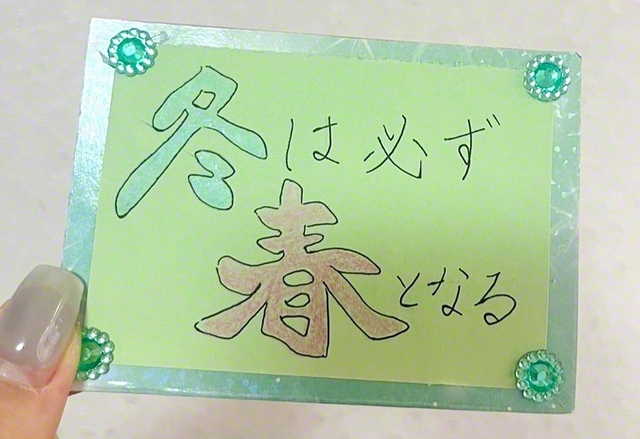 冬は必ず
春となる